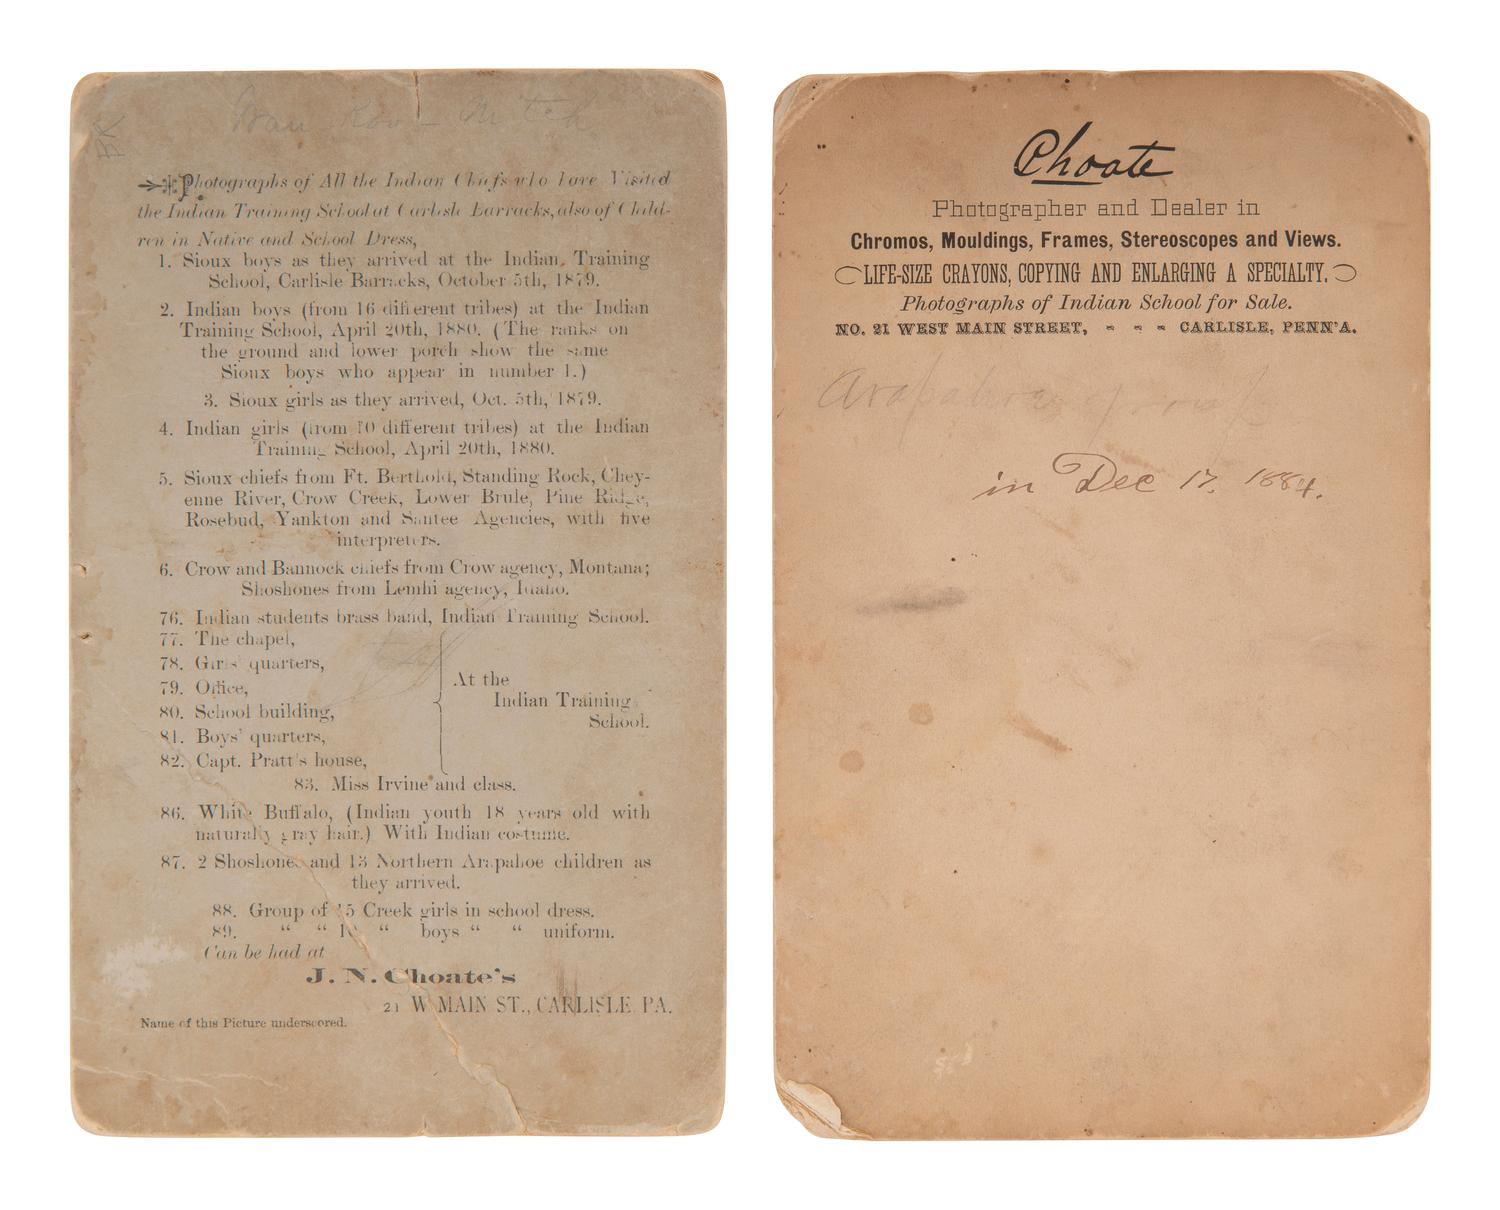 Photographs of All the Indian Chiefs who have Visited
the Indian Training School at Carlisle Barracks, also of Child-
ren in Native and School Dress,
1. Sioux boys as they arrived at the Indian Training
School, Carlisle Barracks, October 5th, 1879.
2. Indian boys (from 16 different tribes) at the Indian
Training School, April 20th, 1880. (The ranks on
the ground and lower porch show the same
Sioux boys who appear in number 1.)
3. Sioux girls as they arrived, Oct. 5th, 1879.
4. Indian girls (from 10 different tribes) at the Indian
Training School, April 20th, 1880.
5. Sioux chiefs from Ft. Berthold, Standing Rock, Chey-
enne River, Crow Creek, Lower Brule, Pine Ridge,
Rosebud, Yankton and Santee Agencies, with five
interpreters.
6. Crow and Bannock chiefs from Crow agency, Montana;
Shoshones from Lemhi agency, Idaho.
76. Indian students brass band, Indian Training School.
77. The chapel,
78. Girls' quarters,
79. Office,
80. School building,
81. Boys' quarters,
82. Capt. Pratt's house,
At the
Indian Training
School.
83. Miss Irvine and class.
86. White Buffalo, (Indian youth 18 years old with
naturally gray hair.) With Indian costume.
87. 2 Shoshone and 13 Northern Arapahoe children as
they arrived.
88. Group of 15 Creek girls in school dress.
89. " " " boys " " uniform.
Can be had at
J. N. Choate's
21 W MAIN ST., CARLISLE PA.
Name of this Picture underscored.
Choate
Photographer and Dealer in
Chromos, Mouldings, Frames, Stereoscopes and Views.
LIFE-SIZE CRAYONS, COPYING AND ENLARGING A SPECIALTY.
Photographs of Indian School for Sale.
NO. 21 WEST MAIN STREET, - - - CARLISLE, PENN'A.
Arapahoe group
in Dec 17, 1884.